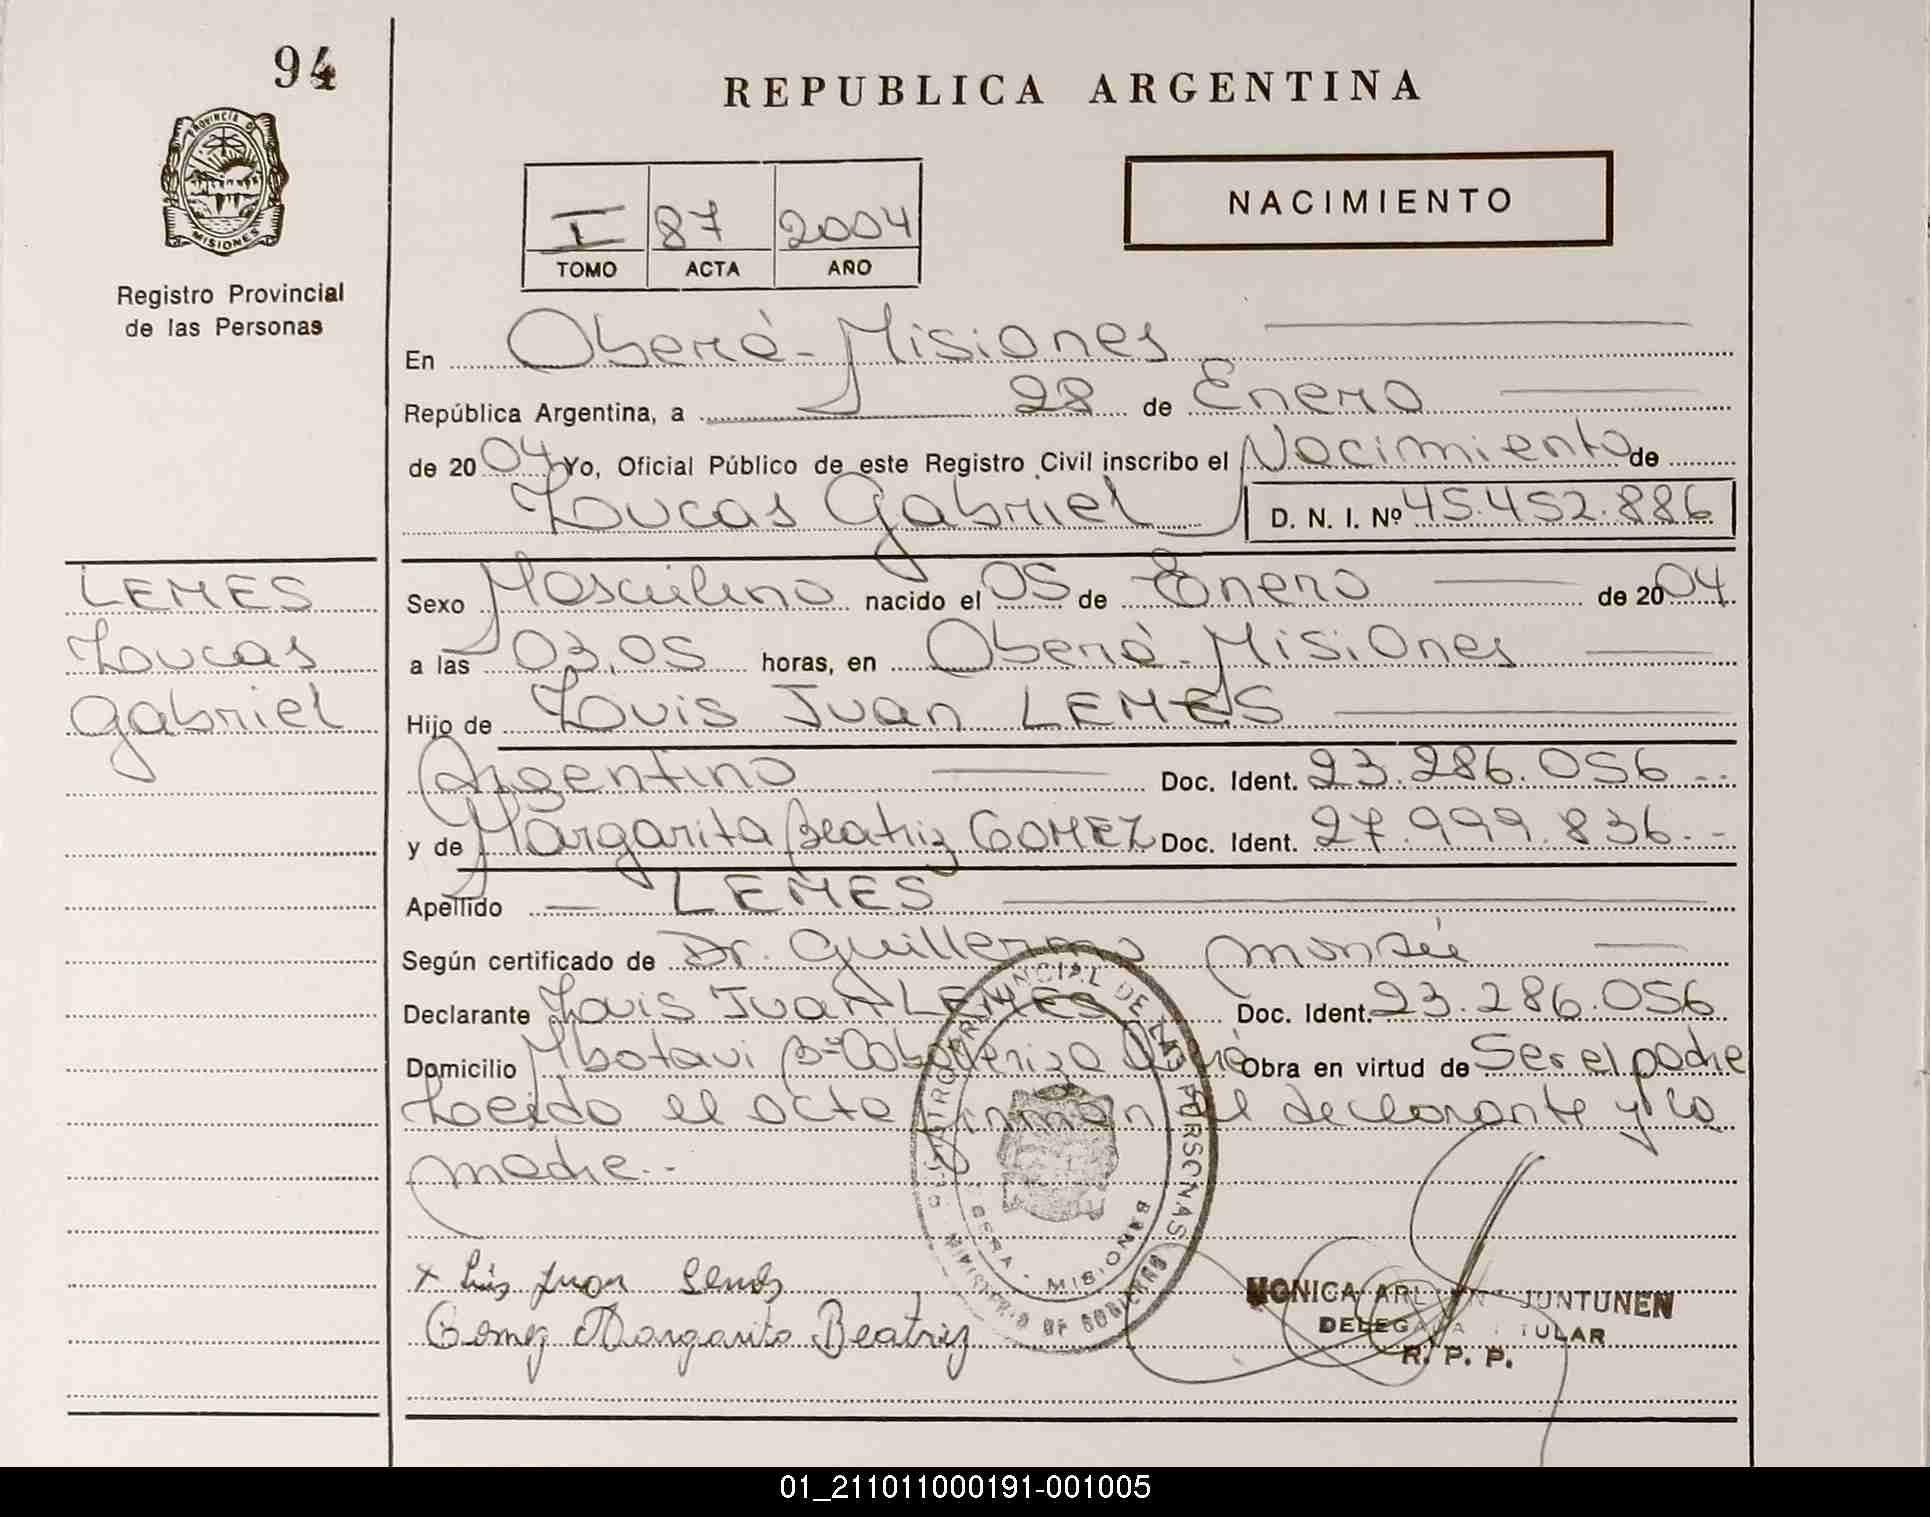 94
REPUBLICA ARGENTINA
PROVINCIA DE
MISIONES
Registro Provincial
de las Personas
I 87 2004
TOMO ACTA AÑO
NACIMIENTO
En Oberá - Misiones
República Argentina, a 28 de Enero
de 2004 Yo, Oficial Público de este Registro Civil inscribo el Nacimiento de
Loucas Gabriel D. N. I. Nº 45.452.886
LEMES
Loucas
Gabriel
Sexo Masculino nacido el 05 de Enero de 2004
a las 03,05 horas, en Oberá - Misiones
Hijo de Louis Juan LEMES
Argentino Doc. Ident. 23.286.056 --
y de Margarita Beatriz GOMEZ Doc. Ident. 27.999.836.-
Apellido — LEMES
Según certificado de Dr. Guillermo
Declarante Louis Juan LEMES Doc. Ident. 23.286.056
Domicilio Obra en virtud de Ser el padre
Leido el acta firman el declarante y la
madre.-
x Luis Juan Lemes
Gomez Margarita Beatriz
MONICA JUNTUNEN
DELEGADA TITULAR
R. P. P.
01_211011000191-001005